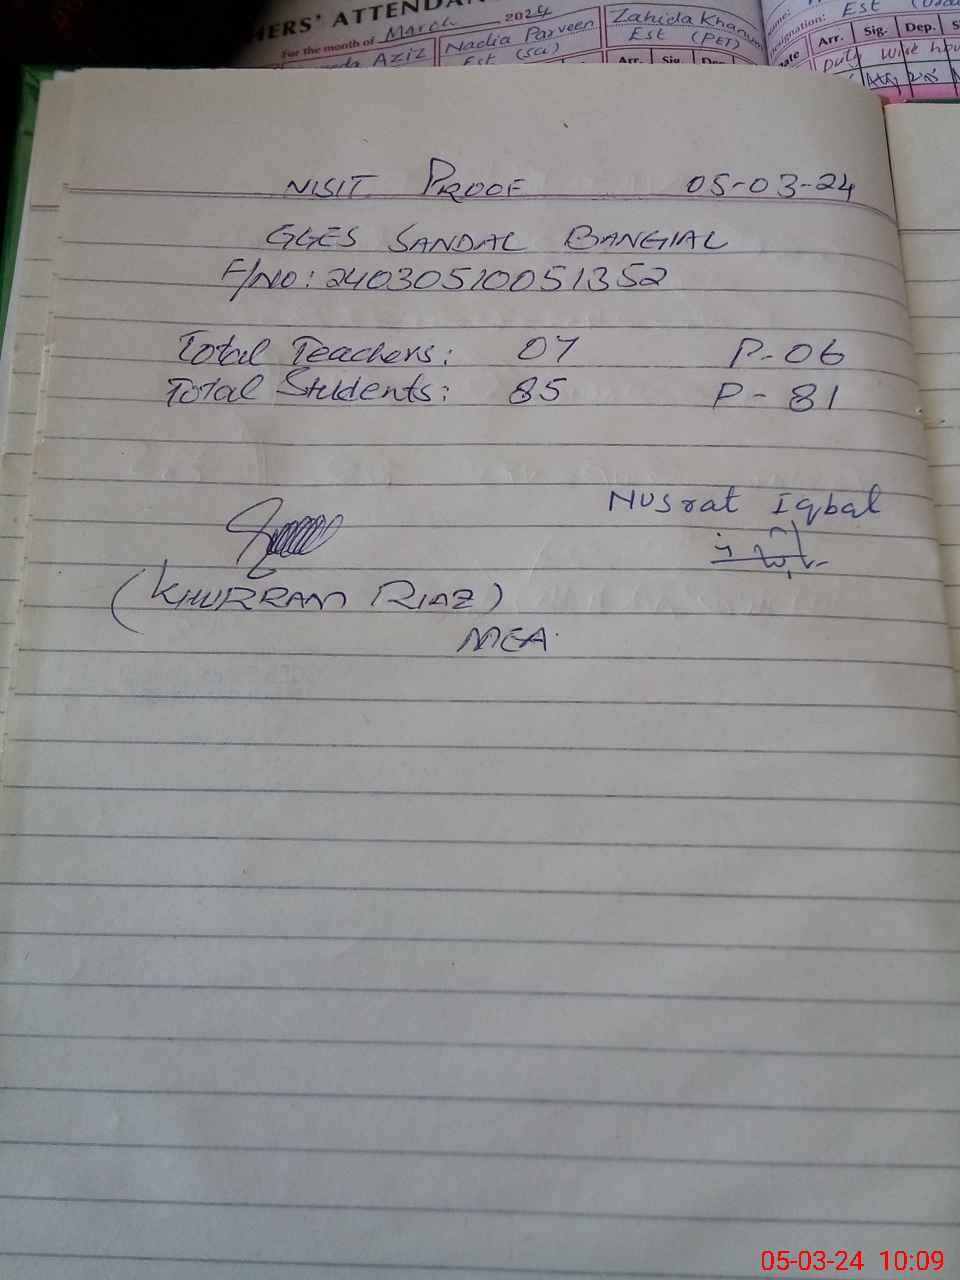 HERS' ATTENDAN
For the month of March 2024
da Aziz
Nadia Parveen
Est (sci)
Zahida Khanum
Est (PET)
Arr. Sig. Dep.
Designation: Est
Arr. Sig. Dep. S
Duty wise hou
VISIT PROOF 05-03-24
GGES SANDAL BANGIAL
F/NO: 24030510051352
Total Teachers: 07 P-06
Total Students: 85 P-81
Nusrat Iqbal
(KHURRAM RIAZ)
MEA.
05-03-24 10:09